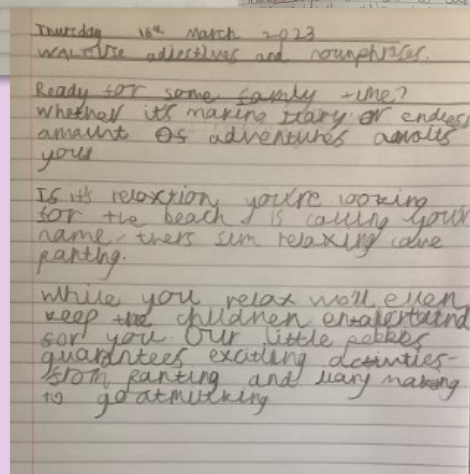 Thursday 16th March 2023
WALT: Use adjectives and nounphrases.
Ready for some family time?
Whether it's making diary or endless
amount of adventures awaits
you
If it's relaxtion you're looking
for the beach is calling your
name thers sum relaxing cave
panting.
While you relax we'll even
keep the children entertaind
for you. Our little pebbles
guarantees exciting activities-
from panting and diary making
to goatmilking